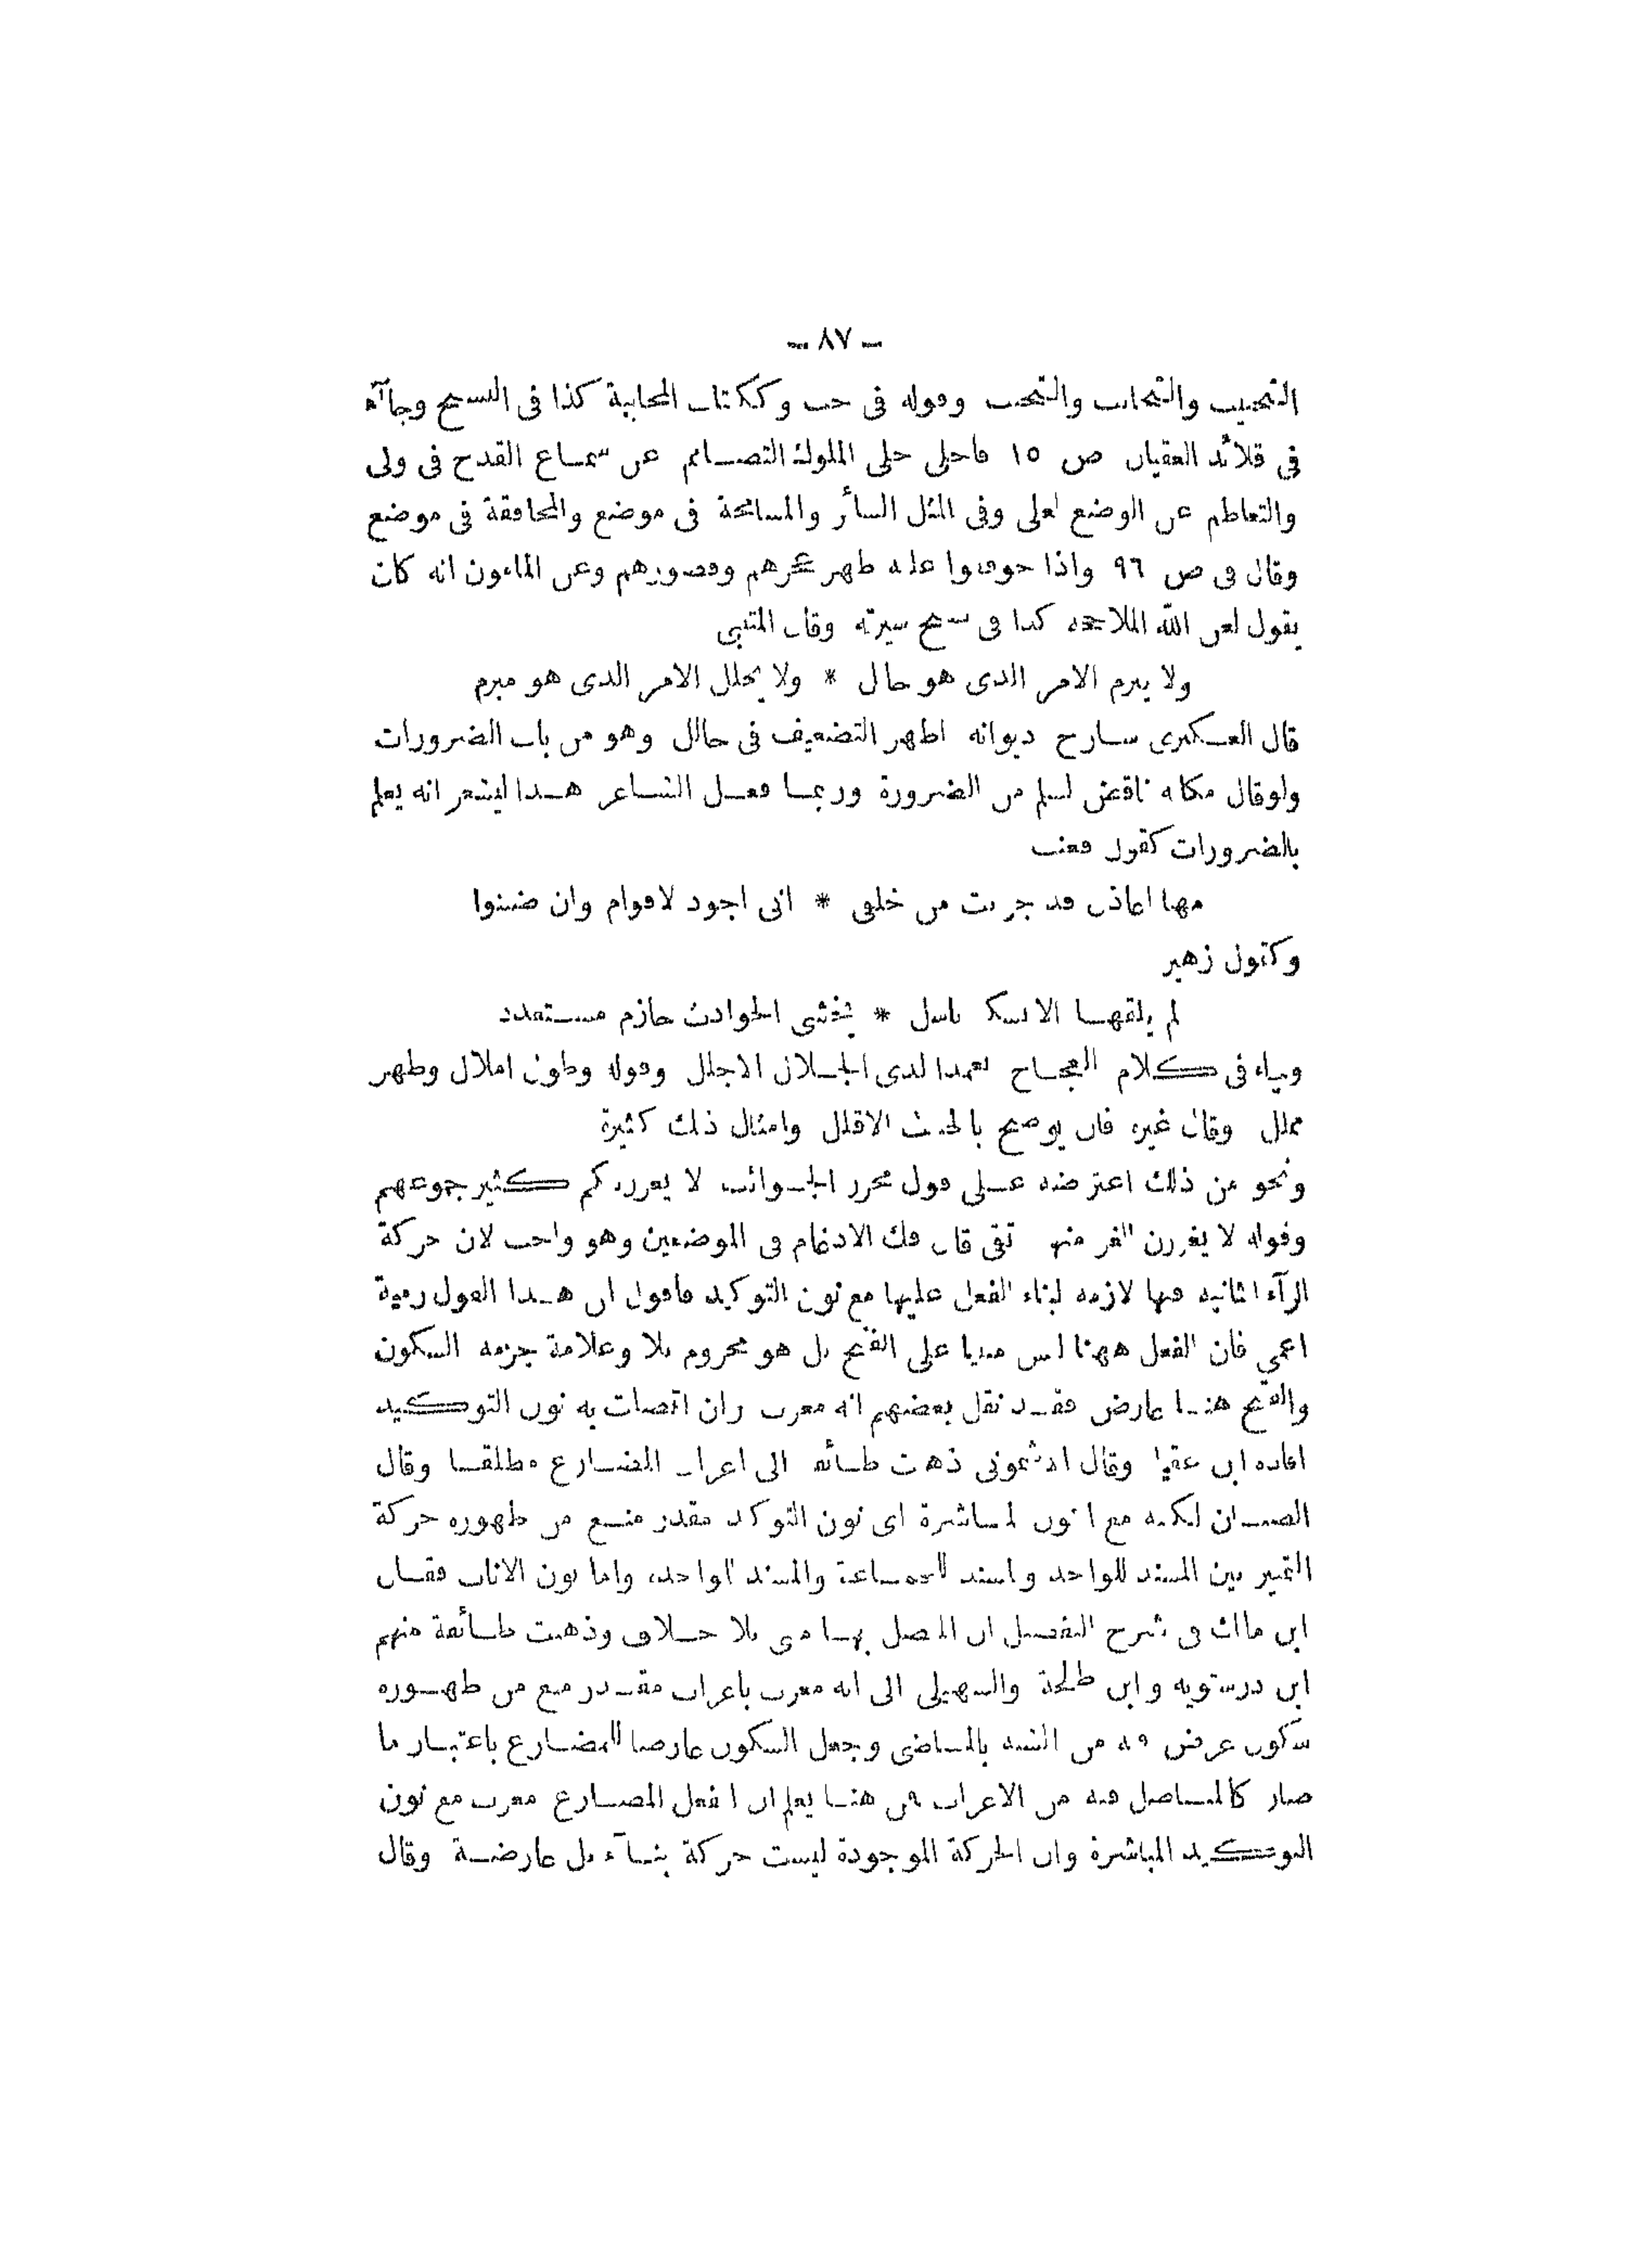 — ٨٧ —
التحبيب والتحابب والتحبب وقوله فى حب وككتاب المحاببة كذا فى النسخ وجاآء
فى قلائد العقيان ص ١٥ فاحلى حلى الملوك التصامم عن سماع القدح فى ولى
والتعاظم عن الوضع لعلى وفى المثل السائر والمسامحة فى موضع والمحاققة فى موضع
وقال فى ص ٩٦ واذا حوققوا عليه ظهر عجزهم وقصورهم وعن المامون انه كان
يقول لعن الله الملاججه كذا فى نسخ سيرته وقال المتنبى
ولا يبرم الامر الذى هو حالل * ولا يحلل الامر الذى هو مبرم
قال العكبرى شارح ديوانه اظهر التضعيف فى حالل وهو من باب الضرورات
ولو قال مكانه ناقض لسلم من الضرورة وربما فعل الشاعر هذا ليشعر انه يعلم
بالضرورات كقول قعنب
مهلا اعاذل قد جربت من خلقى * انى اجود لاقوام وان ضننوا
وكقول زهير
لم يلقها الا بشكة باسل * يخشى الحوادث حازم مستعدد
وجاء فى كلام العجاج تعمدا لدى الجلال الاجلل وقوله وطول املال وظهر
مملل وقال غيره فان يوضح بالحدث الاقلل وامثال ذلك كثيرة
ونحو من ذلك اعتراضه على قول محرر الجوائب لا يغرركم كثير جموعهم
وقوله لا يغررن الغر منهم تقى قال فك الادغام فى الموضعين وهو واجب لان حركة
الرآء الثانيه فيها لازمه لبناء الفعل عليها مع نون التوكيد فاقول ان هذا القول رمية
اعمى فان الفعل ههنا ليس مبنيا على الفتح بل هو مجزوم بلا وعلامة جزمه السكون
والفتح هنا عارض فقد نقل بعضهم انه معرب وان اتصلت به نون التوكيد
افاده ابن عقيل وقال الاشمونى ذهبت طائفه الى اعراب المضارع مطلقا وقال
الصبان لكنه مع النون المباشرة اى نون التوكيد مقدر منع من ظهوره حركة
التمييز بين المسند للواحد والمسند للجماعة والمسند للواحده واما نون الاناث فقال
ابن مالك فى شرح التفصيل ان المتصل بها مبنى بلا خلاف وذهبت طائفة منهم
ابن درستويه وابن طلحة والسهيلى الى انه معرب باعراب مقدر منع من ظهوره
سكون عرض فيه من الشبه بالماضى وجعل السكون عارضا للمضارع باعتبار ما
صار كالمتاصل فيه من الاعراب فمن هنا يعلم ان الفعل المضارع معرب مع نون
التوكيد المباشرة وان الحركة الموجودة ليست حركة بنآء بل عارضة وقال